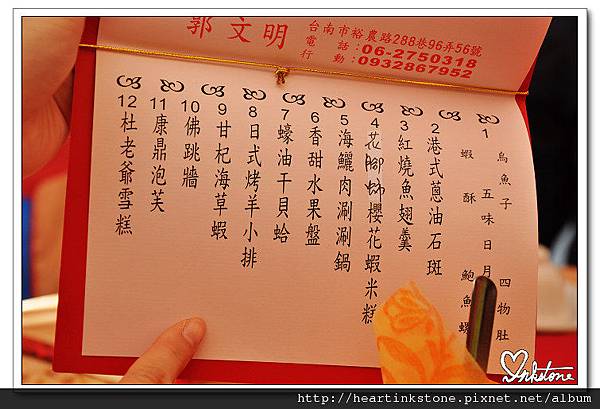 郭文明
台南市裕農路288巷96弄56號
電話：06-2750318
行動：0932867952
1
烏魚子 四物肚
五味日月
蝦酥 鮑魚螺
2 港式蔥油石斑
3 紅燒魚翅羹
4 花腳蟳櫻花蝦米糕
5 海鱺肉涮涮鍋
6 香甜水果盤
7 蠔油干貝蛤
8 日式烤羊小排
9 甘杞海草蝦
10 佛跳牆
11 康鼎泡芙
12 杜老爺雪糕
Inkstone
http://heartinkstone.pixnet.net/album